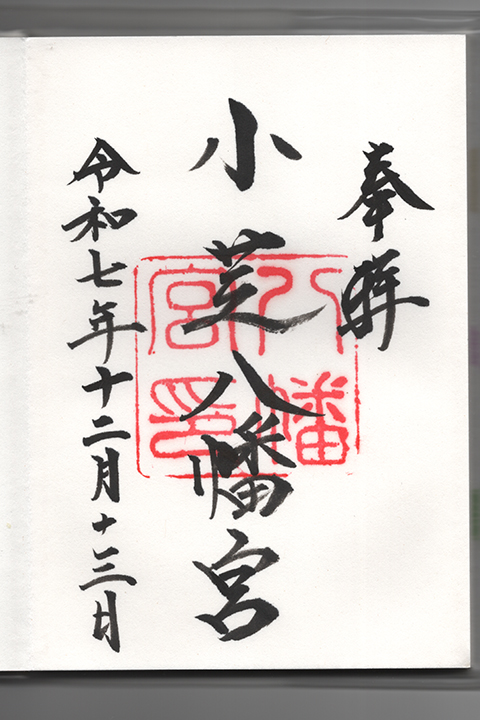 奉拝
小芝八幡宮
八幡宮印
令和七年十二月十三日